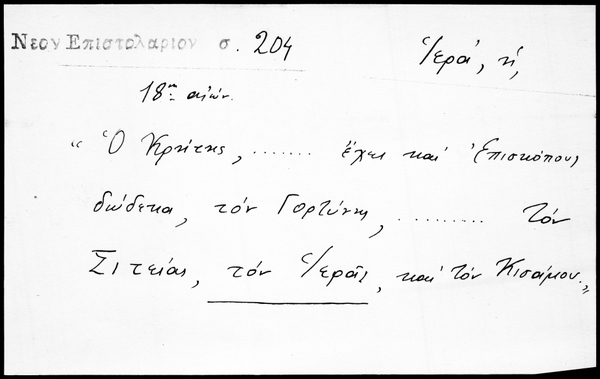 Νεον Επιστολαριον σ. 204
Ἱερά, ἡ,
18ος αἰών.
"Ὁ Κρήτης, ........ ἔχει καὶ Ἐπισκόπους
δώδεκα, τὸν Γορτύνης, .......... τὸν
Σιτείας, τὸν Ἱερᾶς, καὶ τὸν Κισάμου."